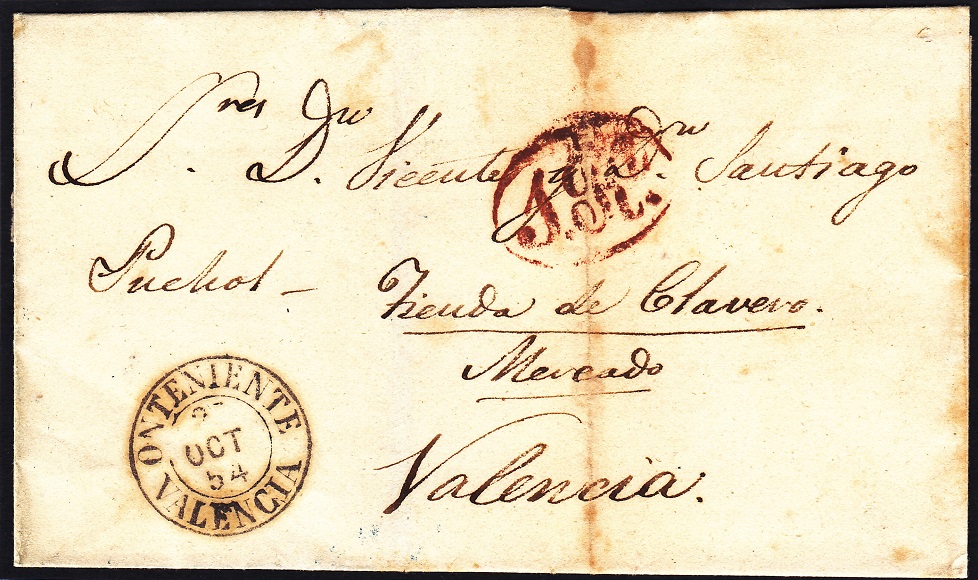 Sres Dn D. Vicente y Dn Santiago
Puchol –
Tienda de Clavero.
Mercado
Valencia.
ONTENIENTE
OCT
54
VALENCIA